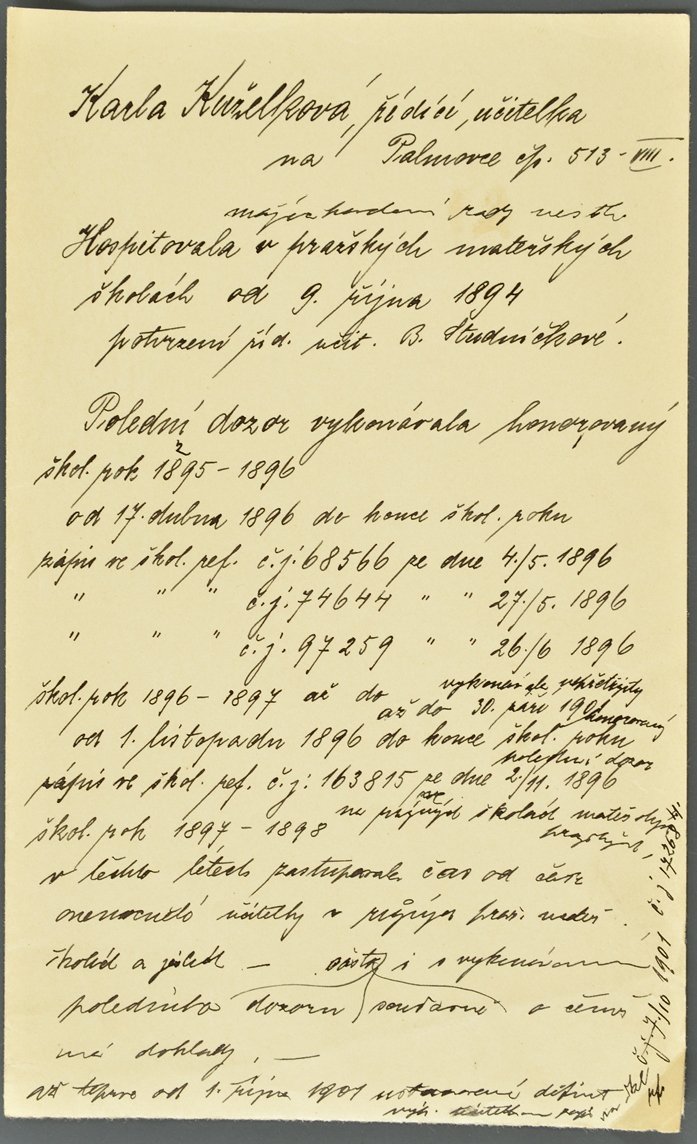 Karla Kuželková, řídící, učitelka
na Palmovce čp. 513-VIII.
rady
Hospitovala v pražských mateřských
školách od 9. října 1894
potvrzení říd. učit. B. Studničkové.
Polední dozor vykonávala honorovaný
škol. rok 1895-1896
od 17. dubna 1896 do konce škol. roku
zápis ve škol. ref. č.j. 68566 ze dne 4./5. 1896
" " " č.j. 74644 " " 27/5. 1896
" " " č.j. 97259 " " 26./6 1896
vykonávala nepřetržitý
škol. rok 1896-1897 až do
až do 30. září 1901
honorovaný
od 1. listopadu 1896 do konce škol. roku
polední dozor
zápis ve škol. ref. č.j. 163815 ze dne 2./11. 1896
na různých školách mateřských
pražských,
škol. rok 1897-1898
v těchto létech zastupovala čas od času
onemocnělé učitelky v různých praž. mateř.
školách a jeslích - často i s vykonáváním
poledního dozoru současně o čemž
má doklady, -
až teprve od 1. října 1901 ustanovena definit
výp.
na
7/10 1901 č.j. 172684.